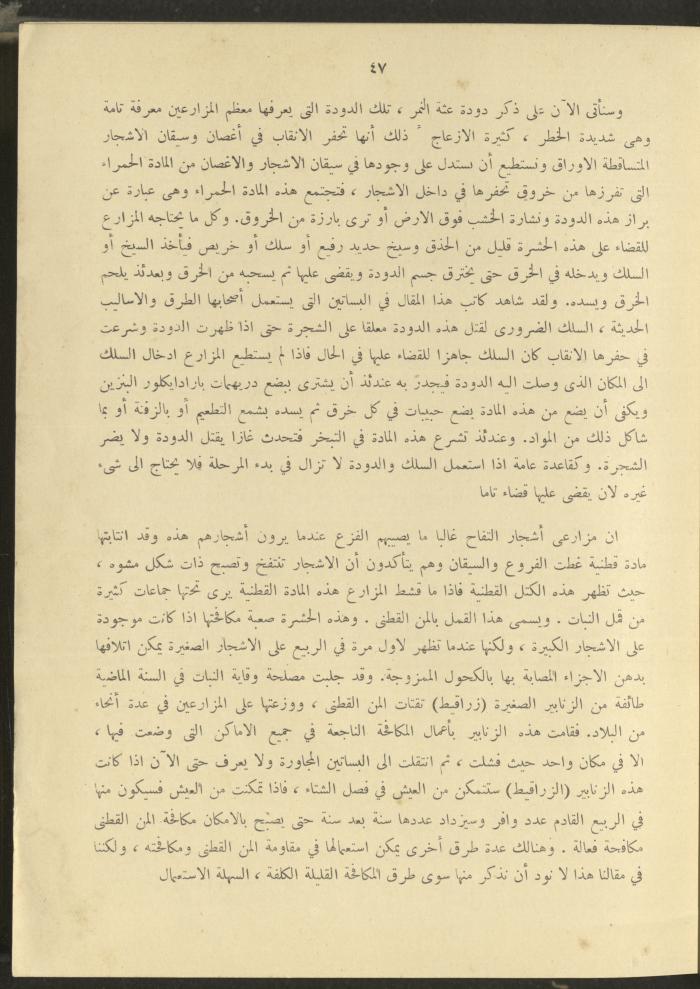 ٤٧
وسنأتى الآن على ذكر دودة عثة النمر ، تلك الدودة التى يعرفها معظم المزارعين معرفة تامة
وهى شديدة الخطر ، كثيرة الازعاج ذلك أنها تحفر الانقاب في أغصان وسيقان الاشجار
المتساقطة الاوراق ونستطيع أن نستدل على وجودها في سيقان الاشجار والاغصان من المادة الحمراء
التى تفرزها من خروق تحفرها في داخل الاشجار ، فتجتمع هذه المادة الحمراء وهى عبارة عن
براز هذه الدودة ونشارة الخشب فوق الارض أو ترى بارزة من الخروق. وكل ما يحتاجه المزارع
للقضاء على هذه الحشرة قليل من الحذق وسيخ حديد رفيع أو سلك أو خريص فيأخذ السيخ أو
السلك ويدخله في الخرق حتى يخترق جسم الدودة ويقضى عليها ثم يسحبه من الخرق وبعدئذ يلحم
الخرق ويسده. ولقد شاهد كاتب هذا المقال في البساتين التى يستعمل أصحابها الطرق والاساليب
الحديثة ، السلك الضرورى لقتل هذه الدودة معلقا على الشجرة حتى اذا ظهرت الدودة وشرعت
في حفرها الانقاب كان السلك جاهزا للقضاء عليها في الحال فاذا لم يستطيع المزارع ادخال السلك
الى المكان الذى وصلت اليه الدودة فيجدر به عندئذ أن يشترى ببضع دريهمات بارادايكلور البنزين
ويكفى أن يضع من هذه المادة بضع حبيبات في كل خرق ثم يسده بشمع التطعيم أو بالزفتة أو بما
شاكل ذلك من المواد. وعندئذ تشرع هذه المادة في التبخر فتحدث غازا يقتل الدودة ولا يضر
الشجرة. وكقاعدة عامة اذا استعمل السلك والدودة لا تزال في بدء المرحلة فلا يحتاج الى شىء
غيره لان يقضى عليها قضاء تاما
ان مزارعى أشجار التفاح غالبا ما يصيبهم الفزع عندما يرون أشجارهم هذه وقد انتابتها
مادة قطنية غطت الفروع والسيقان وهم يتأكدون أن الاشجار تنتفخ وتصبح ذات شكل مشوه ،
حيث تظهر هذه الكتل القطنية فاذا ما قشط المزارع هذه المادة القطنية يرى تحتها جماعات كثيرة
من قمل النبات . ويسمى هذا القمل بالمن القطنى . وهذه الحشرة صعبة مكافحتها اذا كانت موجودة
على الاشجار الكبيرة ، ولكنها عندما تظهر لاول مرة في الربيع على الاشجار الصغيرة يمكن اتلافها
بدهن الاجزاء المصابة بها بالكحول الممزوجة. وقد جلبت مصلحة وقاية النبات في السنة الماضية
طائفة من الزنابير الصغيرة (زراقيط) تقتات المن القطنى ، ووزعتها على المزارعين في عدة أنحاء
من البلاد. فقامت هذه الزنابير بأعمال المكافحة الناجعة في جميع الاماكن التى وضعت فيها ،
الا في مكان واحد حيث فشلت ، ثم انتقلت الى البساتين المجاورة ولا يعرف حتى الآن اذا كانت
هذه الزنابير (الزراقيط) ستتمكن من العيش في فصل الشتاء ، فاذا تمكنت من العيش فسيكون منها
في الربيع القادم عدد وافر وسيزداد عددها سنة بعد سنة حتى يصبح بالامكان مكافحة المن القطنى
مكافحة فعالة . وهنالك عدة طرق أخرى يمكن استعمالها في مقاومة المن القطنى ومكافحته ، ولكننا
في مقالنا هذا لا نود أن نذكر منها سوى طرق المكافحة القليلة الكلفة ، السهلة الاستعمال